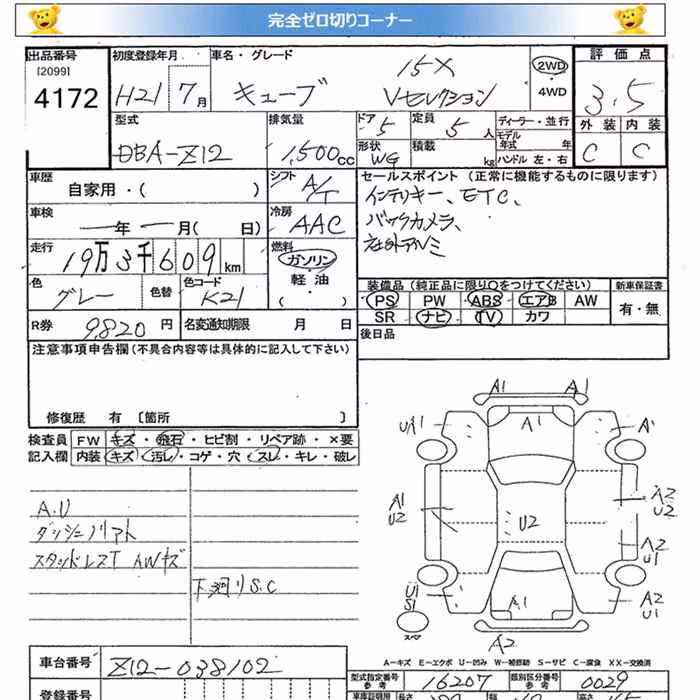 完全ゼロ切りコーナー
出品番号 初度登録年月 車名・グレード 15X 2WD 評価点
[2099]
4172 H21 7月 キューブ Vセレクション ・ 4WD 3.5
型式 排気量 ドア 5 定員 5人 ディーラー・並行 外装 内装
モデル年式 年
DBA-Z12 1,500cc 形状 WG 積載 kg ハンドル 左・右 C C
車歴 自家用・( ) シフト A/T セールスポイント (正常に機能するものに限ります)
インテリキー、ETC、
車検 年 月 ( 日) 冷房 AAC バックカメラ、
走行 19万3千609km 燃料 ガソリン・軽油・( ) 社外アルミ
色 グレー 色替 色コード K21 装備品 (純正品に限り○をつけてください) 新車保証書
PS PW ABS エアB AW 有・無
R券 9,820円 名変通知期限 月 日 SR ナビ TV カワ
注意事項申告欄(不具合内容等は具体的に記入して下さい) 後日品
修復歴 有 [箇所 ]
検査員 FW キズ・飛石・ヒビ割・リペア跡・×要
記入欄 内装 キズ・汚レ・コゲ・穴・スレ・キレ・破レ
A1 A1
UA1 A1 A
A.U
A1 A2
U2 U2 U2
スタッドレスT AWキズ
A2
U1
下河リS.C
U1 A2
S1 A1 U1
スペア
A2
A-キズ E-エクボ U-凹み W-補修跡 S-サビ C-腐食 XX-交換済
車台番号 Z12-038102
型式指定番号 参考 16207 類別区分番号 参考 0029
登録番号 車庫証明用 長さ